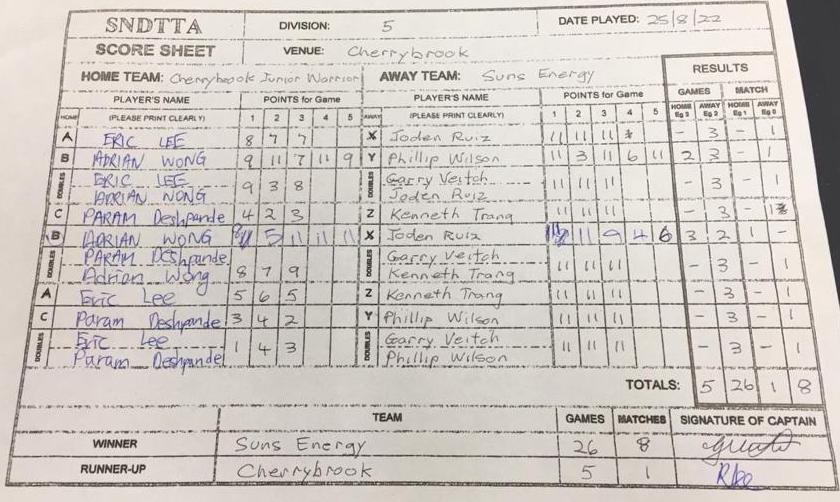 SNDTTA DIVISION: 5 DATE PLAYED: 25/8/22
SCORE SHEET VENUE: Cherrybrook
HOME TEAM: Cherrybrook Junior Warrior AWAY TEAM: Suns Energy RESULTS
PLAYER'S NAME POINTS for Game PLAYER'S NAME POINTS for Game GAMES MATCH
HOME (PLEASE PRINT CLEARLY) 1 2 3 4 5 AWAY (PLEASE PRINT CLEARLY) 1 2 3 4 5 HOME Eg 3 AWAY Eg 2 HOME Eg 1 AWAY Eg 0
A ERIC LEE 8 7 7 X Joden Ruiz 11 11 11 - 3 - 1
B ADRIAN WONG 9 11 7 11 9 Y Phillip Wilson 11 3 11 6 11 2 3 - 1
DOUBLES ERIC LEE 9 3 8 DOUBLES Garry Veitch 11 11 11 - 3 - 1
ADRIAN WONG Joden Ruiz
C PARAM Deshpande 4 2 3 Z Kenneth Trang 11 11 11 - 3 - 1
B ADRIAN WONG 5 11 11 11 X Joden Ruiz 11 9 4 6 3 2 1 -
DOUBLES PARAM Deshpande 8 7 9 DOUBLES Garry Veitch 11 11 11 - 3 - 1
Adrian Wong Kenneth Trang
A Eric Lee 5 6 5 Z Kenneth Trang 11 11 11 - 3 - 1
C Param Deshpande 3 4 2 Y Phillip Wilson 11 11 11 - 3 - 1
DOUBLES Eric Lee 1 4 3 DOUBLES Garry Veitch 11 11 11 - 3 - 1
Param Deshpande Phillip Wilson
TOTALS: 5 26 1 8
TEAM GAMES MATCHES SIGNATURE OF CAPTAIN
WINNER Suns Energy 26 8
RUNNER-UP Cherrybrook 5 1